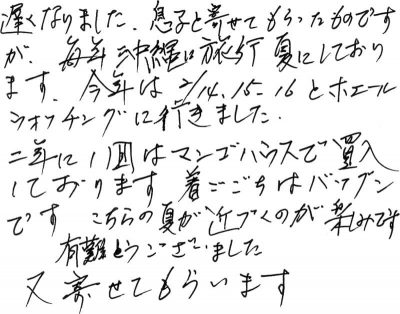 遅くなりました。息子と寄せてもらったものです
が、毎年沖縄に旅行夏にしており
ます。今年は2/14.15.16とホエール
ウォッチングに行きました。
二年に1回はマンゴハウスで買入
しております 着ごこちはバツグン
です こちらの夏が近づくのが楽みです
有難とうございました
又寄せてもらいます